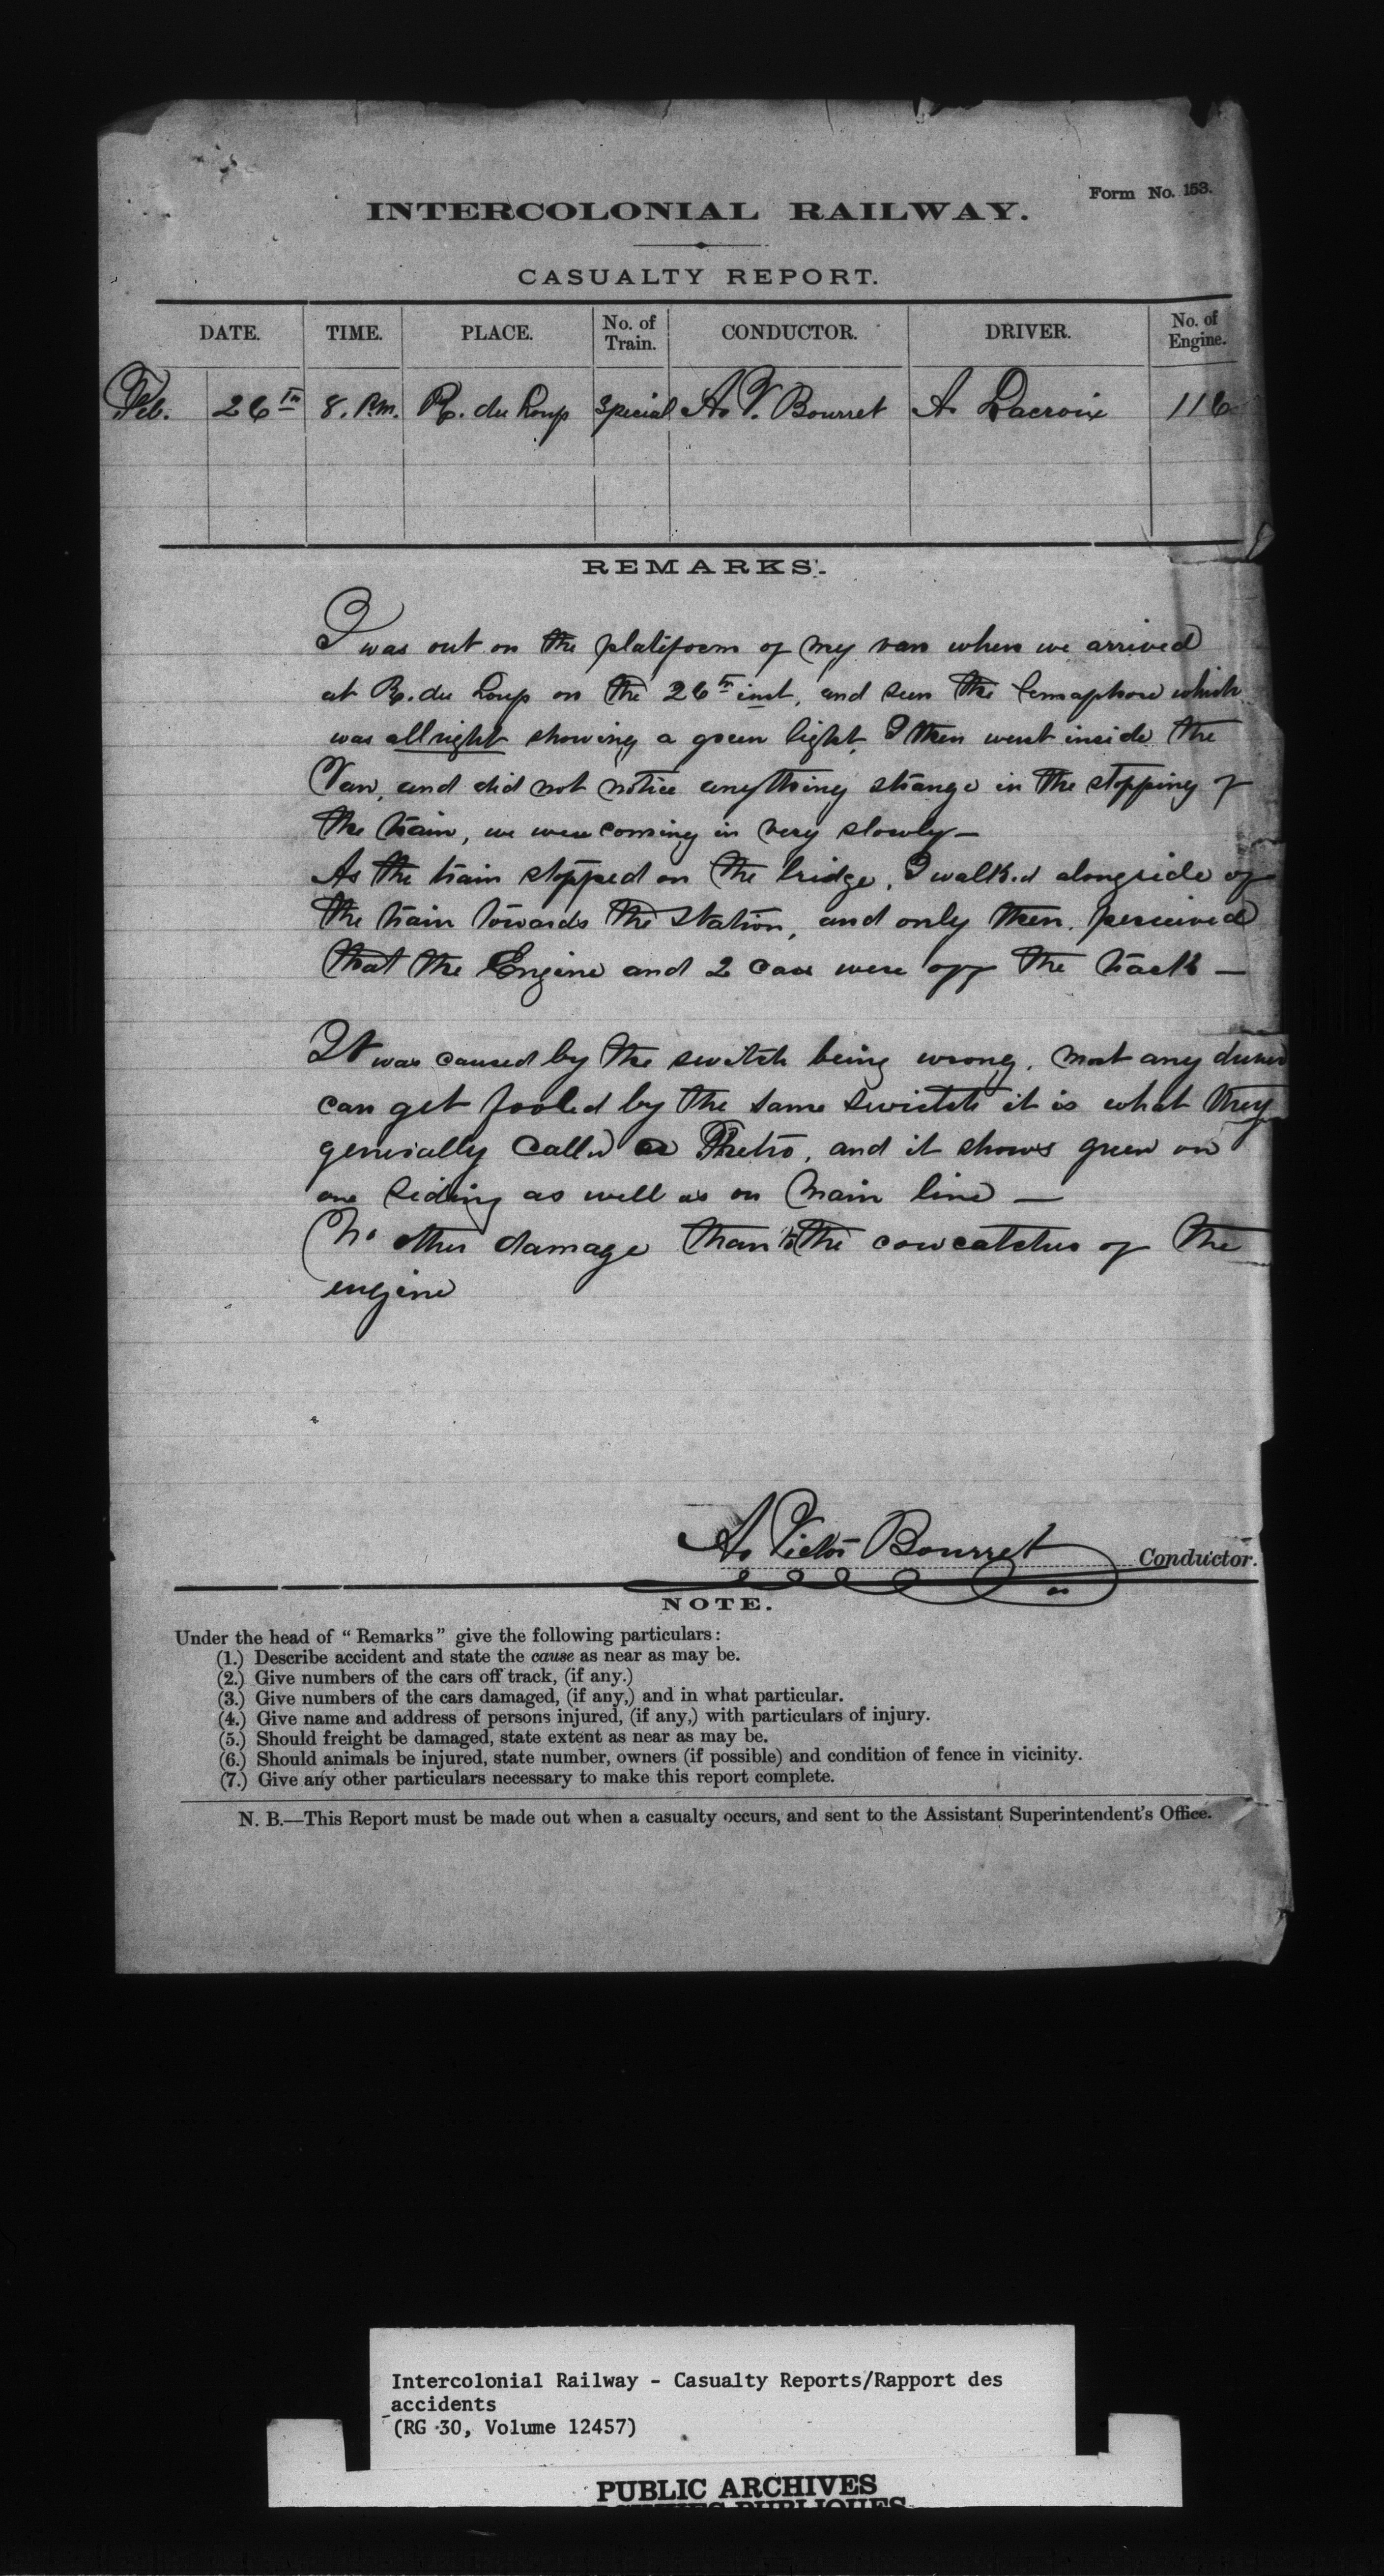 Form No. 153.
INTERCOLONIAL RAILWAY.
CASUALTY REPORT.
DATE. TIME. PLACE. No. of Train. CONDUCTOR. DRIVER. No. of Engine.
Feb. 26th 8. P.M. R. du Loup Special A. V. Bourret A. Lacroix 116
REMARKS.
I was out on the platiform of my van when we arrived
at R. du Loup on the 26th inst, and seen the Semaphore which
was all right showing a green light, I then went inside the
Van, and did not notice anything strange in the stopping of
the train, we were coming in very slowly —
As the train stopped on the bridge, I walked alongside of
the train towards the station, and only then, perceived
that the Engine and 2 cars were off the track —
It was caused by the switch being wrong, most any driver
can get fooled by the same switch it is what they
generally called a, and it shows green on
one siding as well as on main line —
No other damage than to the cowcatcher of the
engine
A. Victor Bourret Conductor.
NOTE.
Under the head of "Remarks" give the following particulars:
(1.) Describe accident and state the cause as near as may be.
(2.) Give numbers of the cars off track, (if any.)
(3.) Give numbers of the cars damaged, (if any,) and in what particular.
(4.) Give name and address of persons injured, (if any,) with particulars of injury.
(5.) Should freight be damaged, state extent as near as may be.
(6.) Should animals be injured, state number, owners (if possible) and condition of fence in vicinity.
(7.) Give any other particulars necessary to make this report complete.
N. B.—This Report must be made out when a casualty occurs, and sent to the Assistant Superintendent's Office.
Intercolonial Railway - Casualty Reports/Rapport des
accidents
(RG 30, Volume 12457)
PUBLIC ARCHIVES